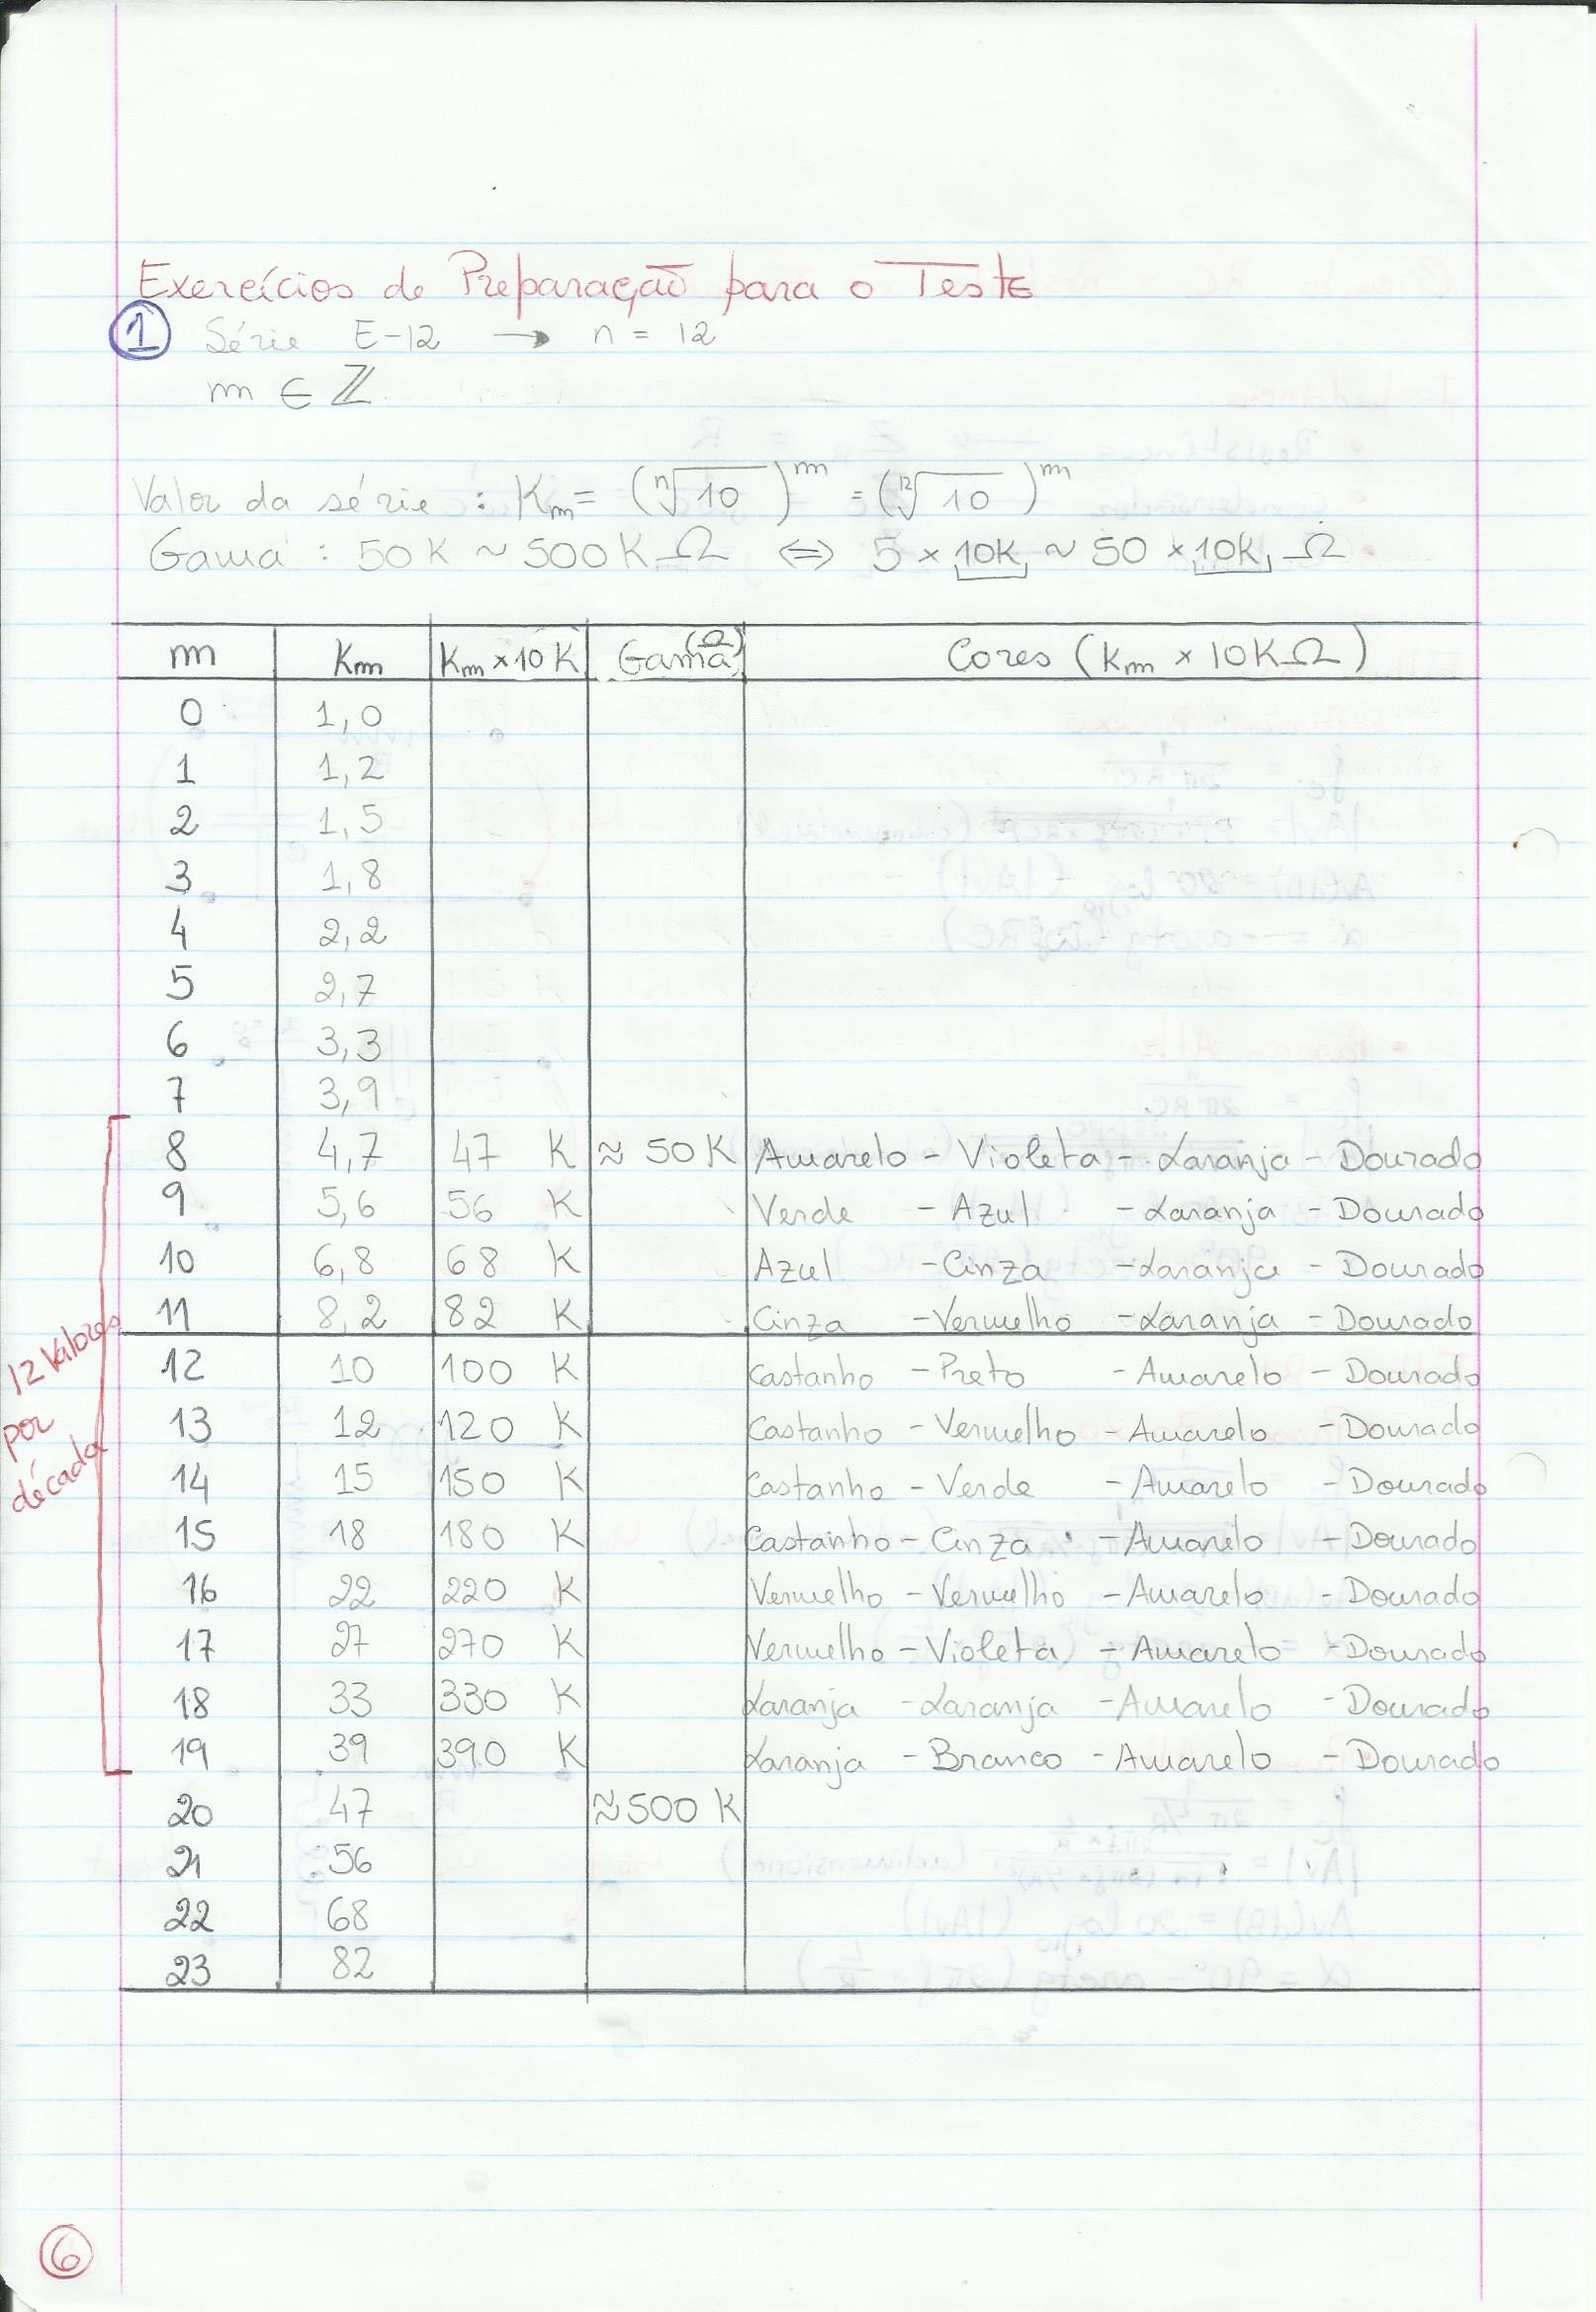 Exercícios de Preparação para o Teste
1 Série E-12 → n = 12
m ∈ ℤ
Valor da série : Km = (ⁿ√10)ᵐ = (¹²√10)ᵐ
Gama : 50K ~ 500K Ω ⇔ 5 × 10K ~ 50 × 10K Ω
m Km Km × 10 K Gama (Ω) Cores (Km × 10KΩ)
0 1,0
1 1,2
2 1,5
3 1,8
4 2,2
5 2,7
6 3,3
7 3,9
8 4,7 47 K ≈ 50K Amarelo - Violeta - Laranja - Dourado
9 5,6 56 K Verde - Azul - Laranja - Dourado
10 6,8 68 K Azul - Cinza - Laranja - Dourado
11 8,2 82 K Cinza - Vermelho - Laranja - Dourado
12 10 100 K Castanho - Preto - Amarelo - Dourado
13 12 120 K Castanho - Vermelho - Amarelo - Dourado
14 15 150 K Castanho - Verde - Amarelo - Dourado
15 18 180 K Castanho - Cinza - Amarelo - Dourado
16 22 220 K Vermelho - Vermelho - Amarelo - Dourado
17 27 270 K Vermelho - Violeta - Amarelo - Dourado
18 33 330 K Laranja - Laranja - Amarelo - Dourado
19 39 390 K Laranja - Branco - Amarelo - Dourado
20 47 ≈ 500 K
21 56
22 68
23 82
12 Valores
por
década
6